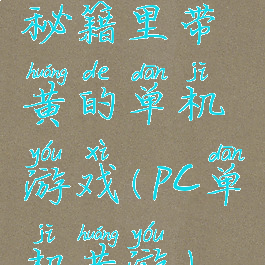 秘籍里带
huáng de dān jī
黄的单机
yóu xì dān
游戏(PC单
jī huáng yóu
机黄游)